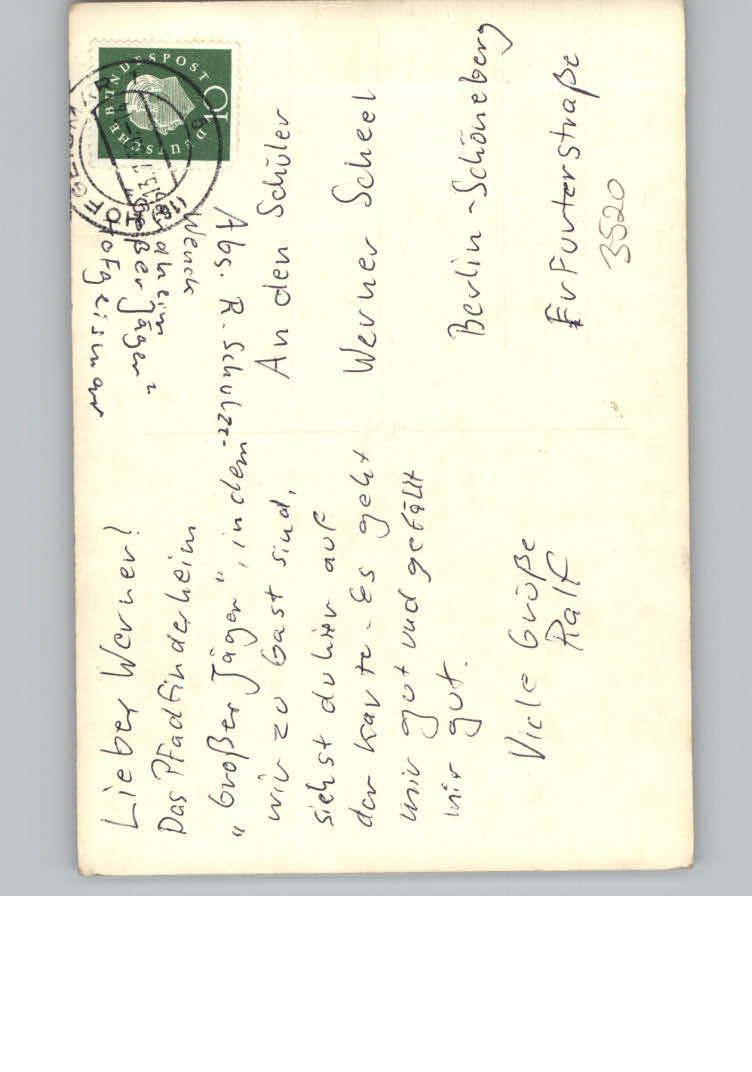 Lieber Werner!
Das Pfadfinderheim
„Großer Jäger“, in dem
wir zu Gast sind,
siehst du hier auf
der Karte. Es geht
mir gut und gefällt
mir gut.
Viele Grüße
Ralf
Abs. R. Schulze-
Wenck
dheim
"Großer Jäger"
Hofgeismar
An den Schüler
Werner Scheel
Berlin-Schöneberg
Erfurterstraße
3520
DEUTSCHE BUNDESPOST
10
HOFGEISMAR